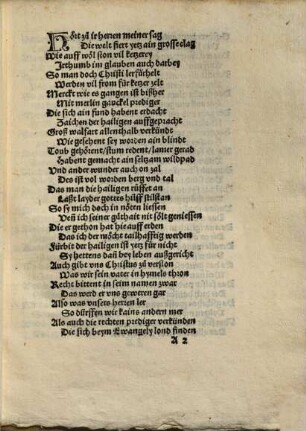 Hört zů ir herren meiner sag
Die welt fiert yetz ain grosse clag
Wie auff wöl ston vil ketzerey
Irthumb im glauben auch darbey
So man doch Christi ler fürhelt
Werden vil from für ketzer zelt
Merckt wie es gangen ist bißher
Mit merlin gauckel prediger
Die sich ain fund habent erdacht
Zaichen der hailigen auffgepracht
Groß walfart allenthalb verkündt
Wie gesehent sey worden ain blindt
Toub gehörent/stum redent/lamer gerad
Habent gemacht ain seltzam wildpad
Vnd ander wunder auch on zal
Des ist vol worden berg vnd tal
Das man die hailigen rüffet an
Laßt layder gottes hilff stilstan
So er mich doch in nöten liessen
Veß ich seiner gůthait nit sölt geniessen
Die er gethon hat hie auff erden
Das ich der möcht tailhafftig werden
Fürbit der hailigen ist yetz für nicht
Sy hettens daß bey leben außgericht
Auch gibt vns Christus zů verston
Was wir sein vater in hymels thron
Recht bittent in seim namen zwar
Das werd er vns geweren gar
Also was vnsers herren ler
So dürffen wir kains andern mer
Als auch die rechten prediger verkünden
Die sich beym Ewangely lond finden
A 2